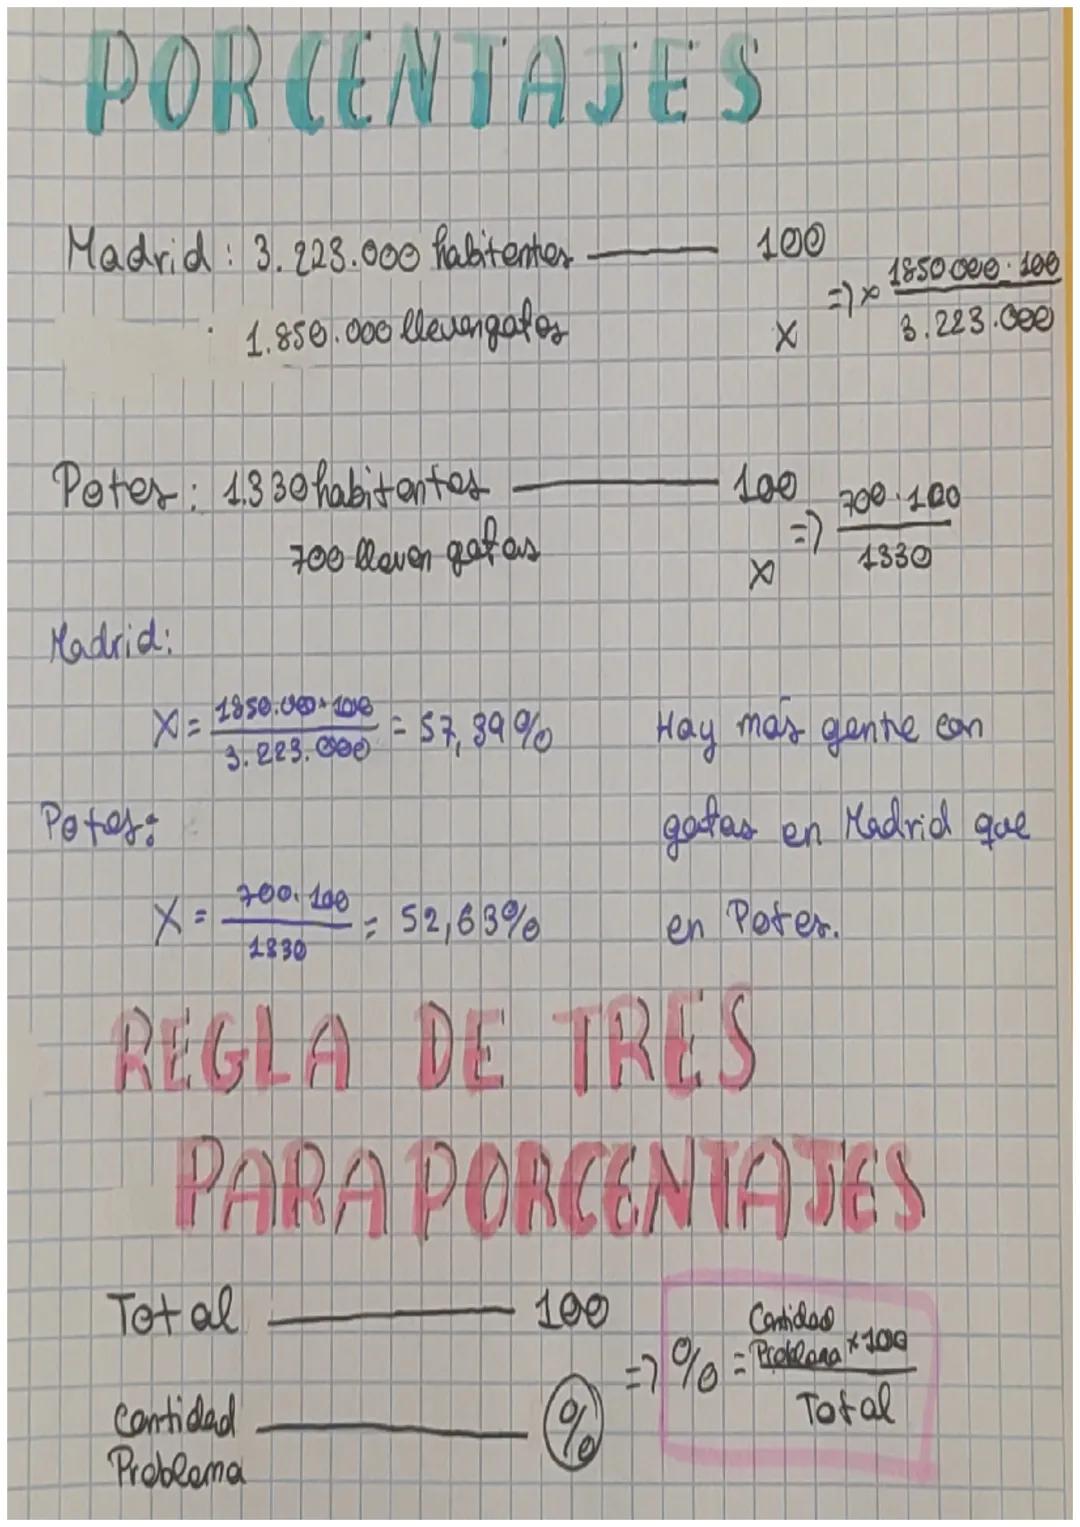 PORCENTAJES
Madrid: 3.223.000 habitantes 100
1.850.000 llevan gafas x
=> x 1850000·100
3.223.000
Potes: 1.330 habitantes 100
700 llevan gafas x
=> 700·100
1330
Madrid:
X = 1850.000·100 = 57,39%
3.223.000
Potes:
X = 700·100 = 52,63%
1330
Hay más gente con
gafas en Madrid que
en Potes.
REGLA DE TRES
PARA PORCENTAJES
Total 100
Cantidad %
Problema
=> % = Cantidad
Problema x 100
Total